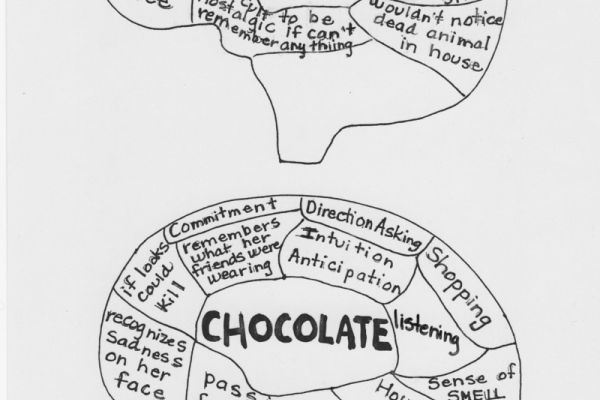 cult to be
nostalgic if can't
remember any thiing
wouldn't notice
dead animal
in house
Commitment
Direction Asking
Shopping
if looks
could
kill
remembers
what her
friends were
wearing
Intuition
Anticipation
CHOCOLATE
listening
recognizes
sadness
on her
face
pass
Sense of
SMELL